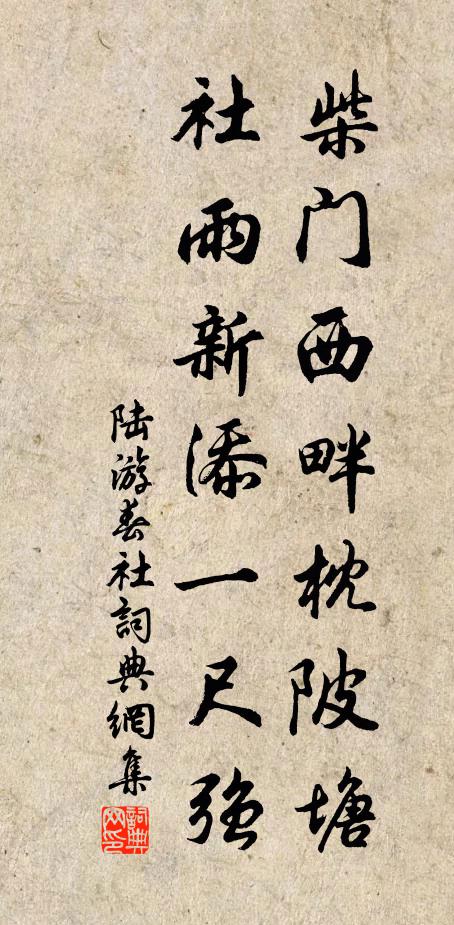 柴门西畔枕陂塘
社雨新添一尺强
陆游春社詞典網集
詞典网印